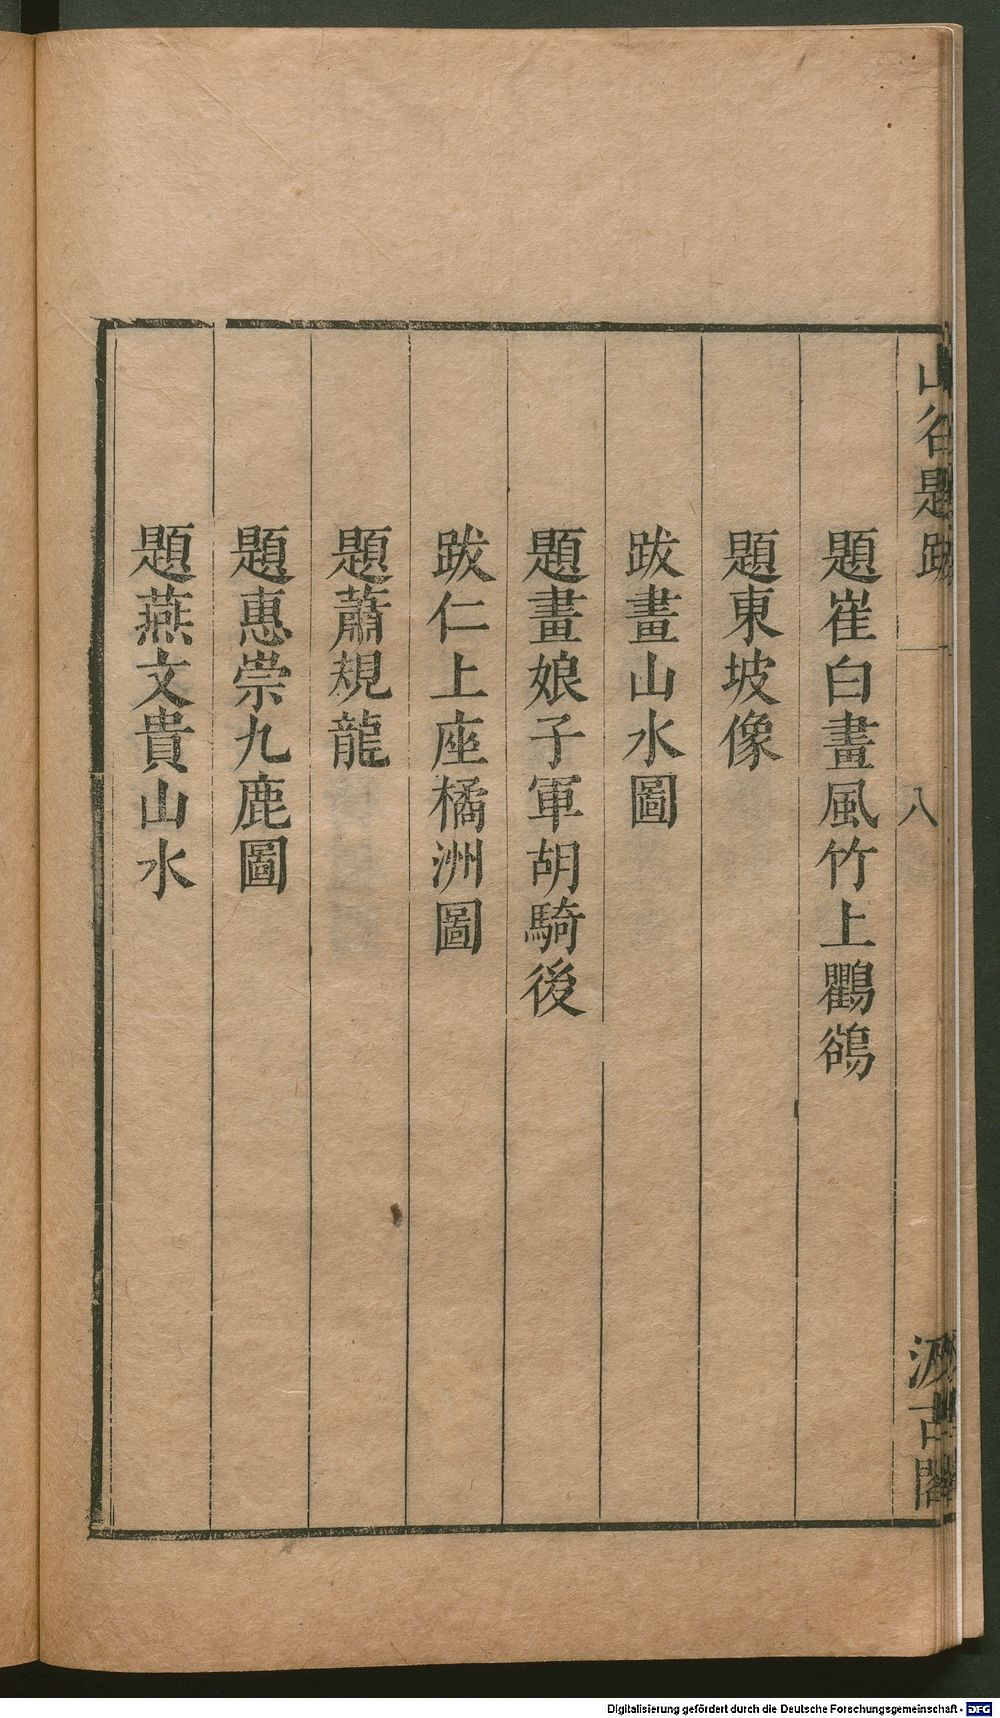 山谷題跋
八
汲古閣
題崔白畫風竹上鸜鵒
題東坡像
跋畫山水圖
題畫娘子軍胡騎後
跋仁上座橘洲圖
題蕭規龍
題惠崇九鹿圖
題燕文貴山水
Digitalisierung gefördert durch die Deutsche Forschungsgemeinschaft - DFG